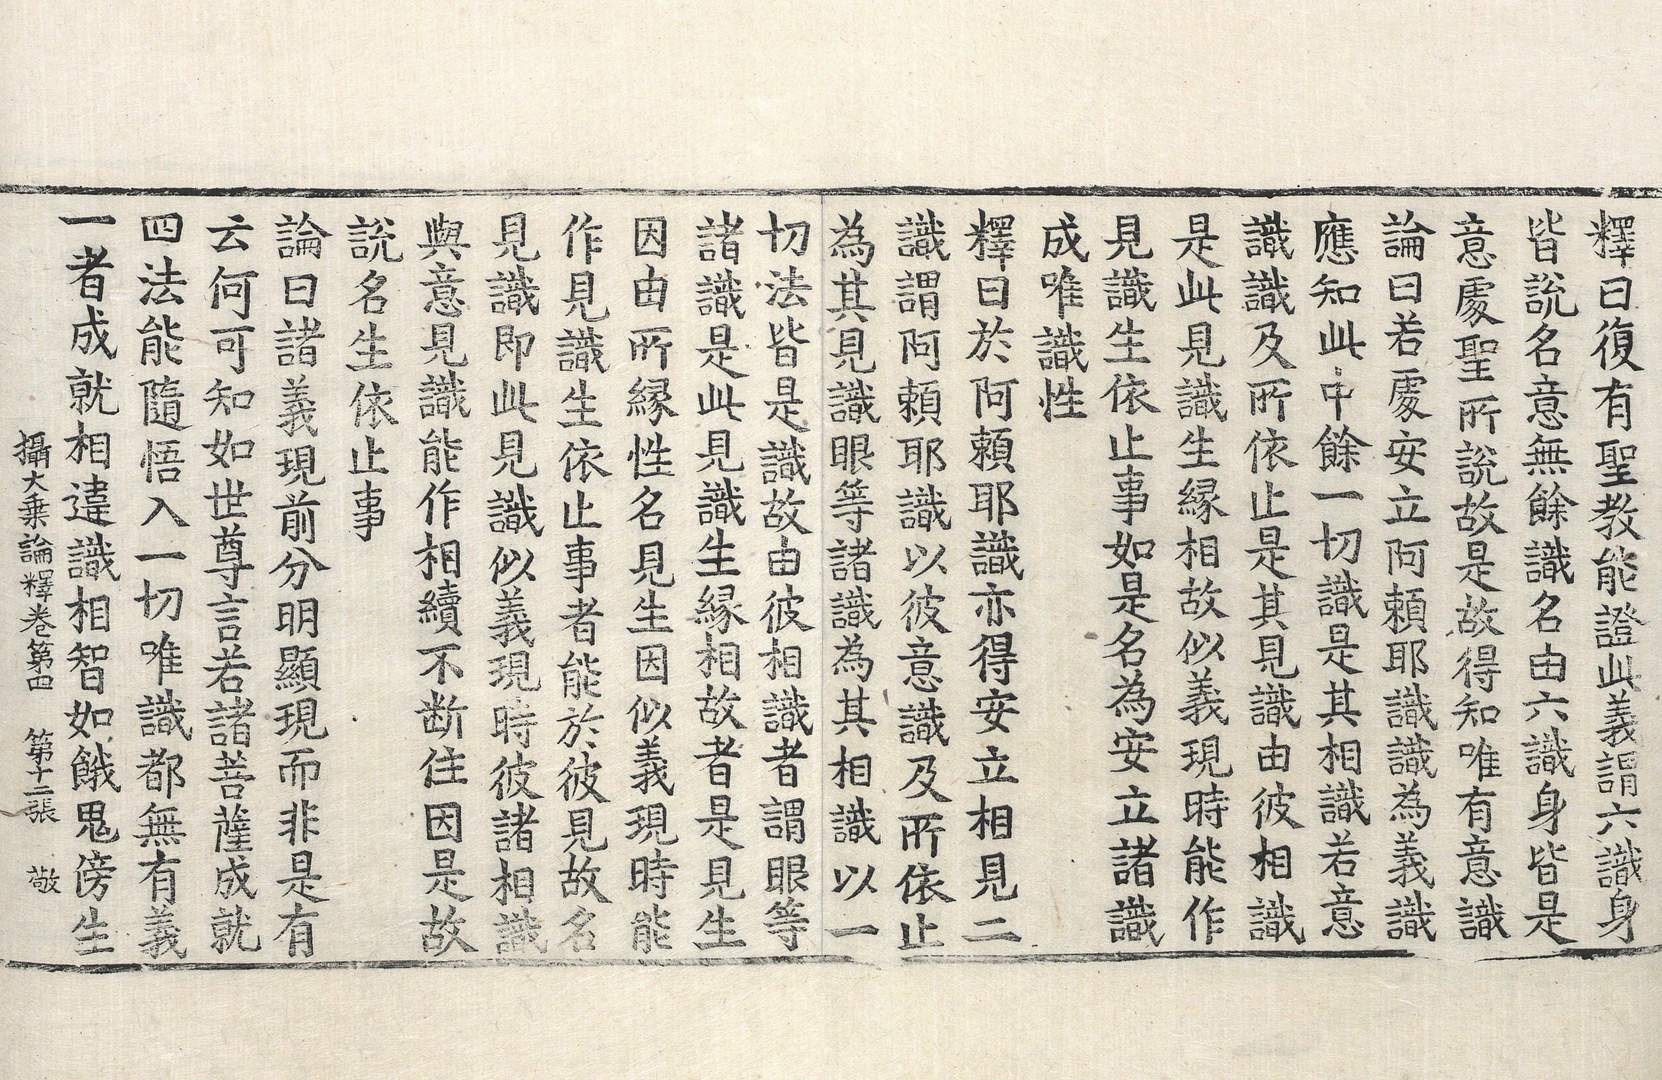 釋曰復有聖教能證此義謂六識身
皆說名意無餘識名由六識身皆是
意處聖所說故是故得知唯有意識
論曰若處安立阿賴耶識識為義識
應知此中餘一切識是其相識若意
識識及所依止是其見識由彼相識
是此見識生緣相故似義現時能作
見識生依止事如是名為安立諸識
成唯識性
釋曰於阿賴耶識亦得安立相見二
識謂阿賴耶識以彼意識及所依止
為其見識眼等諸識為其相識以一
切法皆是識故由彼相識者謂眼等
諸識是此見識生緣相故者是見生
因由所緣性名見生因似義現時能
作見識生依止事者能於彼見故名
見識即此見識似義現時彼諸相識
與意見識能作相續不断住因是故
說名生依止事
論曰諸義現前分明顯現而非是有
云何可知如世尊言若諸菩薩成就
四法能隨悟入一切唯識都無有義
一者成就相違識相智如餓鬼傍生
攝大乗論釋卷第四　第十二張　敬